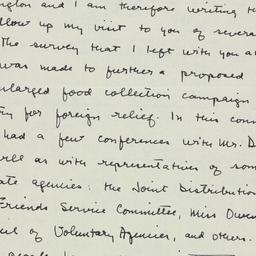 ngton and I am therefore writing t
llow up my visit to you of severa
The survey that I left with you a
was made to further a proposed
nlarged food collection campaign
try for foreign relief. In this conn
had a few conferences with Mr. D
well as with representatives of som
ate agencies: the Joint Distribution
Friends Service Committee, Miss Owen
cil of Voluntary Agencies, and others.